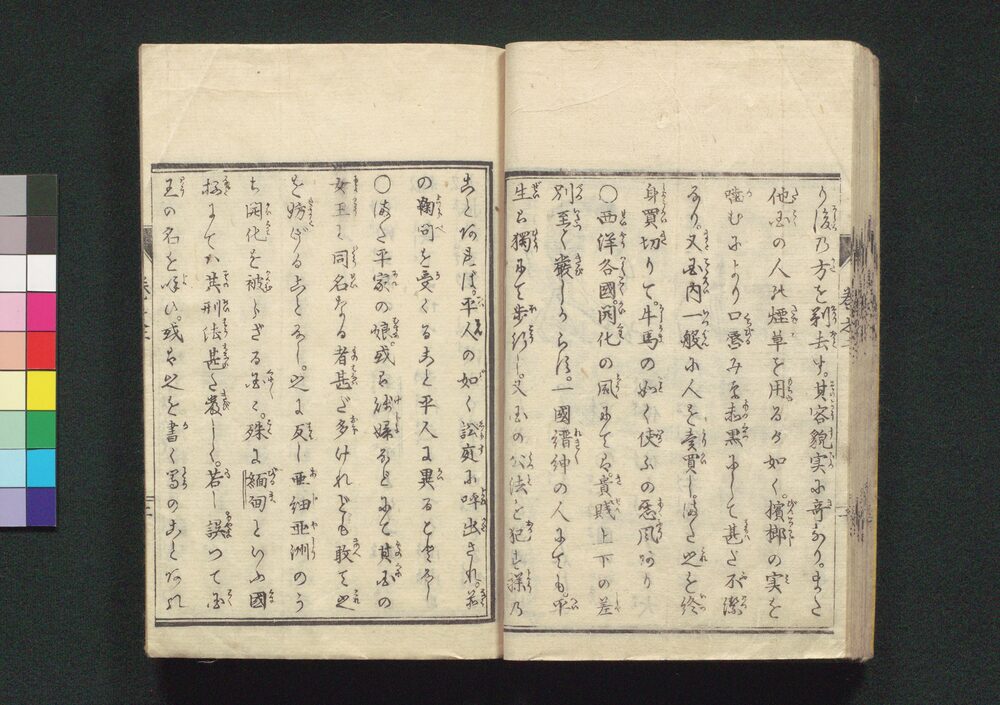 り後乃方を剃去す。其容貌実に奇なり。また
他国の人の煙草を用るが如く。檳榔の実を
噛むにより口唇みな赤黒にして甚だ不潔
なり。又国内一般に人を売買し。また之を終
身買切りて。牛馬の如く使ふの悪風あり
〇西洋各國。開化の風にては。貴賤上下の差
別至て厳しからず。一國縉紳の人にても。平
生は獨にて歩行し。又国の公法を犯す様乃
ことあれば。平人の如く訟庭に呼出され。
の鞠問を受くること平人に異ることなし
〇また平家の娘。或は下婢などにて其国の
女王と同名なる者甚だ多けれども敢て之
を妨ぐることなし。之に反し亜細亜洲のう
ち開化を被らざる国々。殊に緬甸といふ國
抔にては其刑法甚だ厳しく。若し誤つて国
王の名を呼ひ。或は之を書く等のことあれ